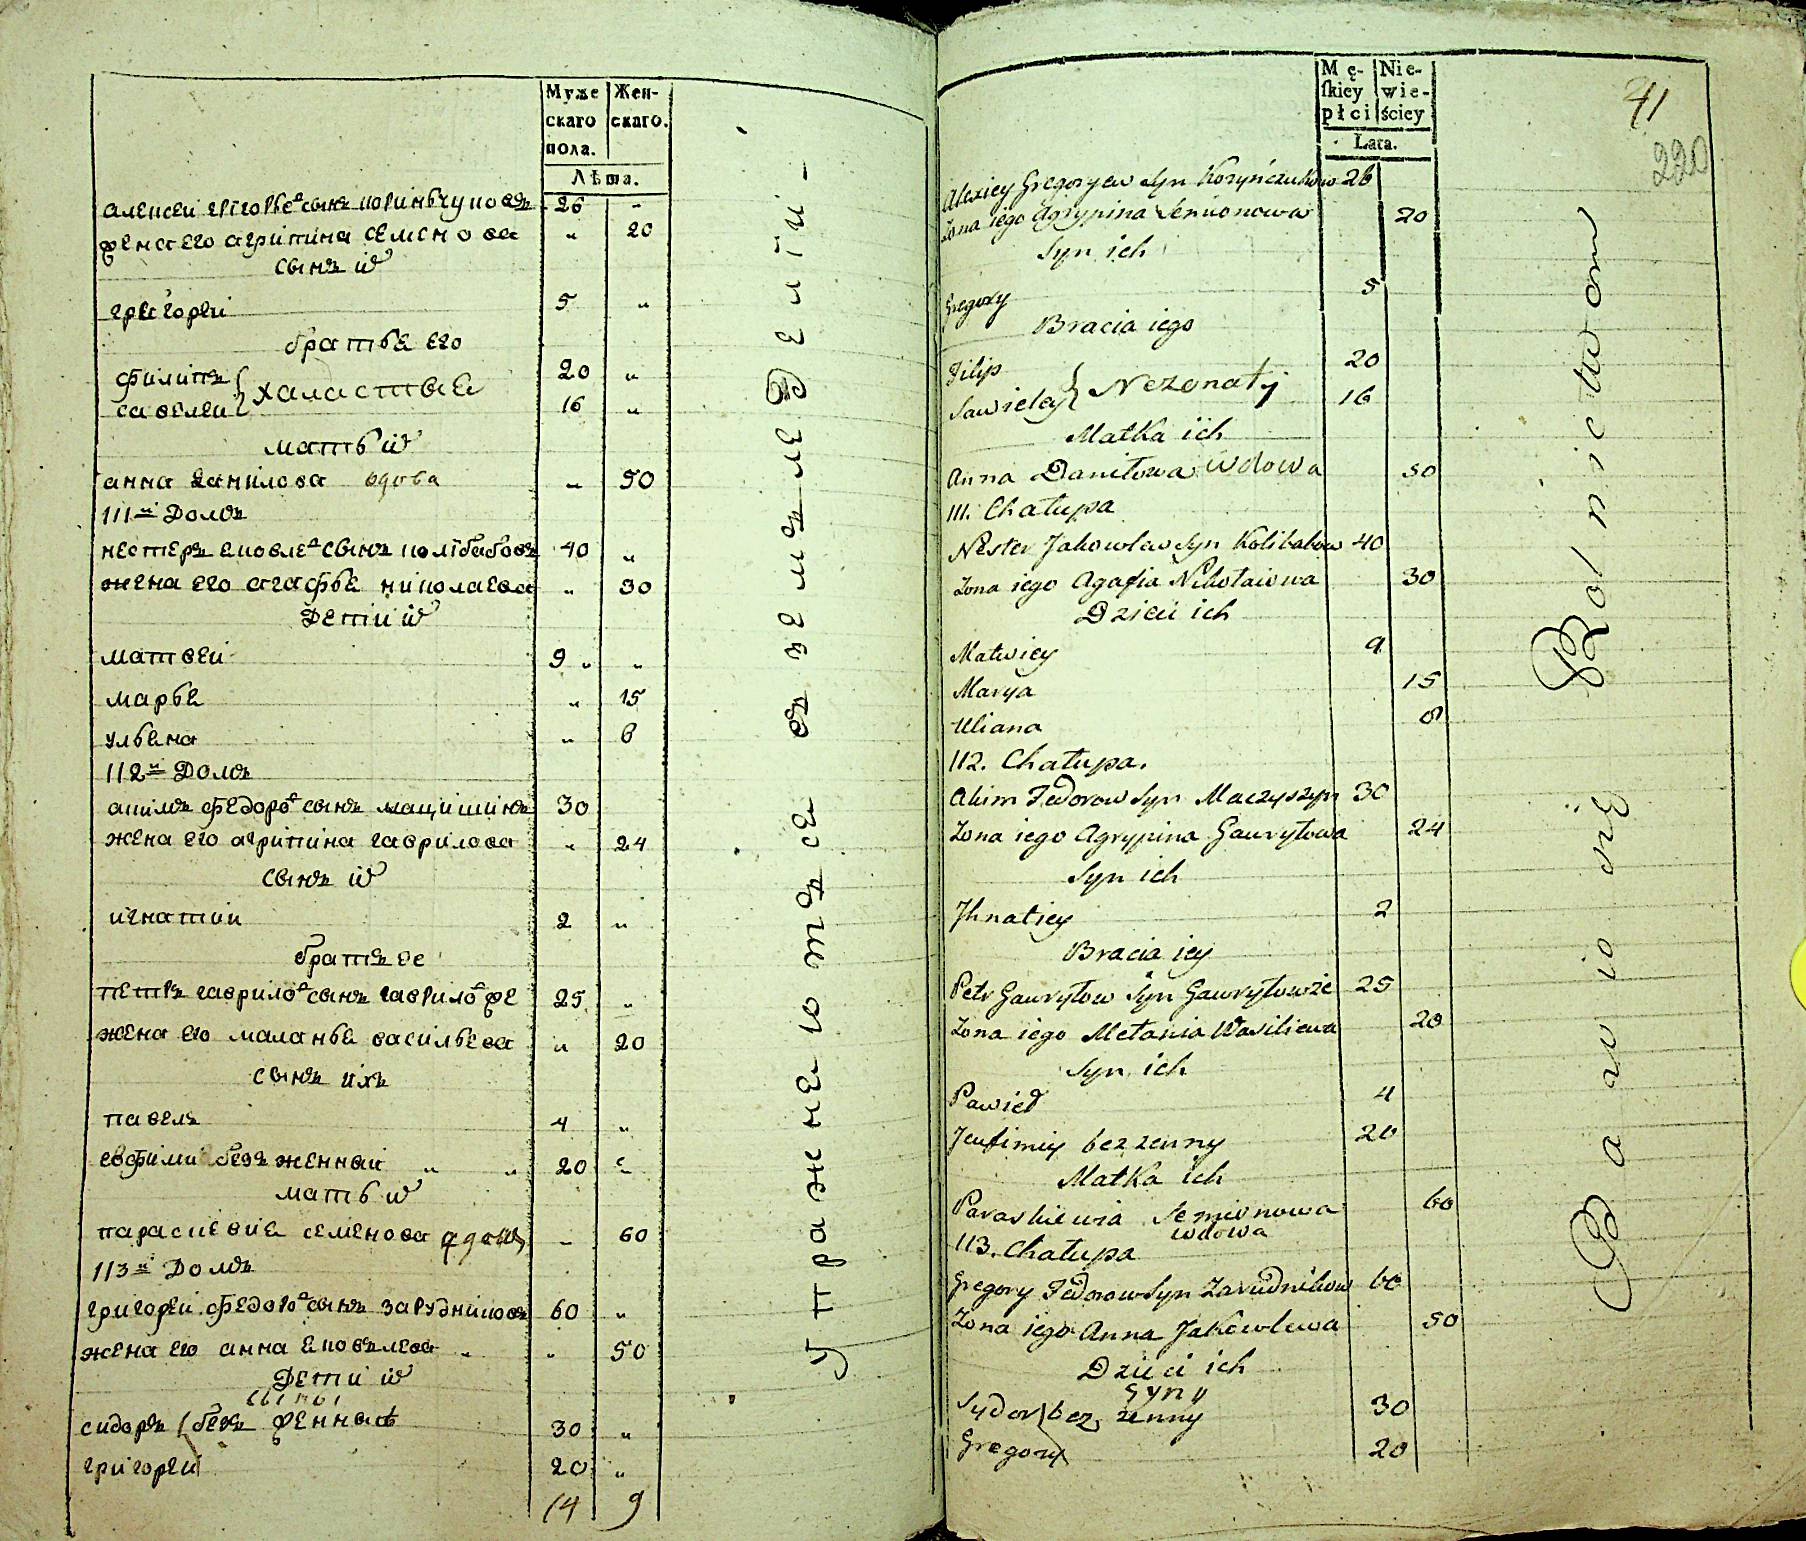 Муже
скаго
пола.
Жен-
скаго.
Лѣта.
алексеи григорьев сынъ кориньчуковъ 26 -
жена его агрипина семенова " 20
сынъ их
григореи 5 "
братья его
филипъ 20 "
савелеи } халастые 16 "
мать их
анна данилова вдова " 50
111й Домъ
нестеръ яковлев сынъ колібабовъ 40 "
жена его агафья николаева " 30
Дети их
матвеи 9 " "
марья " 15
ульяна " 8
112й Домъ
акимъ федоров сынъ мацишинъ 30
жена его агрипина гаврилова " 24
сынъ их
игнатии 2 "
братья ее
петръ гаврилов сынъ гаврилов же 25 "
жена его маланья васильева " 20
сынъ ихъ
павелъ 4 "
евфими безженныи " " 20
мать их
параскевия семенова вдова - 60
113й Домъ
григореи федоров сынъ зарудниковъ 60 "
жена его анна яковлева " " 50
Дети их
сыны
сидоръ безженные 30 "
григореи 20 "
14 9
Упражнеютъся въ земъледеліи -
Mę-
ſkiey
płci
Nie-
wie-
ściey
Lata.
41
220
Alexiey Gregoryew Syn Koryńczukow 26
Żona iego Agrypina Semionowa 20
Syn ich
Gregory 5
Bracia iego
Filip 20
Sawieley } Nezonaty 16
Matka ich
Anna Daniłowa wdowa 50
111. Chałupa
Nester Jakowlew Syn Kolibabow 40
Żona iego Agafia Nikołaiowa 30
Dzieci ich
Matwiey 9
Marya 15
Uliana 8
112. Chałupa.
Akim Fedorow Syn Maczyszyn 30
Żona iego Agrypina Gawryłowa 24
Syn ich
Jhnatiey 2
Bracia iey
Petr Gawryłow Syn Gawryłowże 25
Żona iego Mełania Wasiliewa 20
Syn ich
Pawieł 4
Jeufimiy bezzenny 20
Matka ich
Paraskiewia Semionowa 60
wdowa
113. Chałupa
Gregory Fedorow Syn Zarudnikow 60
Żona iego Anna Jakowlewa 50
Dzieci ich
Syny
Sydor bez żenny 30
Gregory 20
Bawio się Rolnictwom